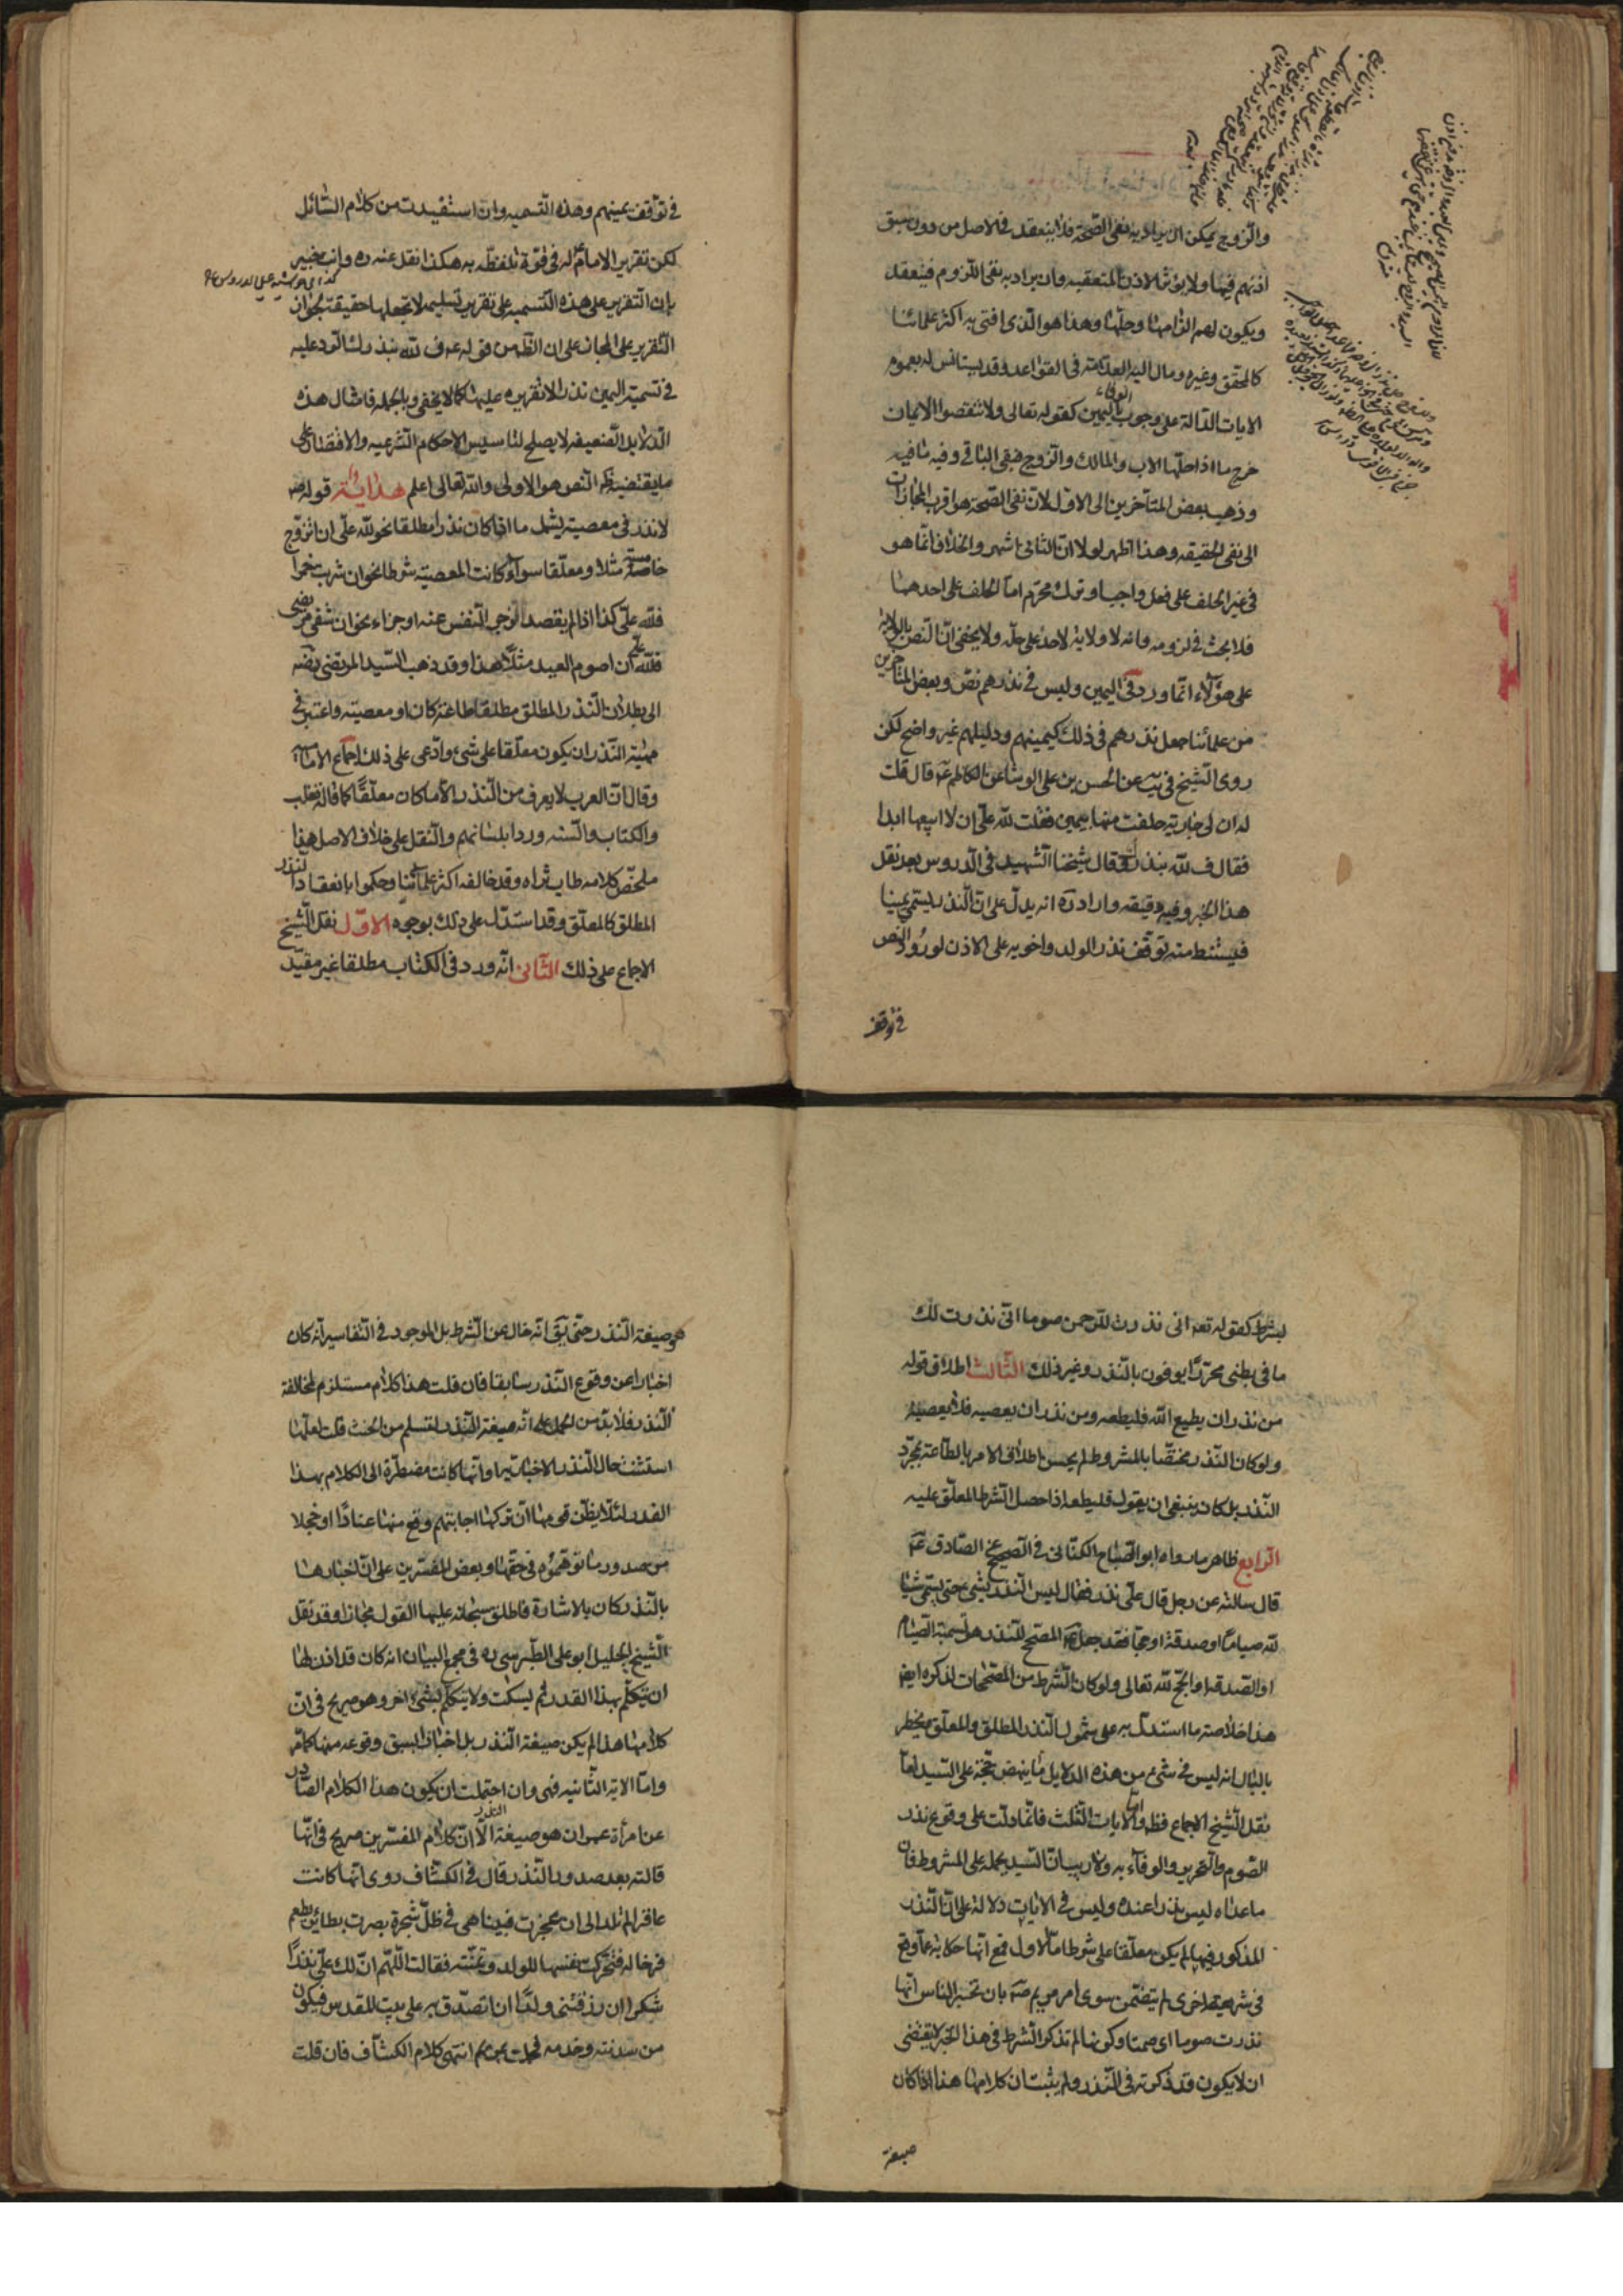 والزوج يمكن ان يراد به نفى الصحة فلا ينعقد فى الاصل من دون سبق
اذنهم فيها ولا يؤثر الاذن المتعقبه وان يراد به نفى اللزوم فينعقد
ويكون لهم الزامها وحلها وهذا هو الذى افتى به اكثر علمائنا
كالمحقق وغيره ومال اليه العلامة فى القواعد وقد يستانس له بعموم
الايات الدالة على وجوب الوفاء باليمين كقوله تعالى ولا تنقضوا الايمان
خرج ما اذا حلها الاب والمالك والزوج فبقى الباقى وفيه ما فيه
وذهب بعض المتاخرين الى الاول لان نفى الصحة هو اقرب المجازات
الى نفى الحقيقه وهذا اظهر لولا ان الثانى اشهر والخلاف انما هو
فى غير الحلف على فعل واجب او ترك محرم اما الحلف على احدهما
فلا بحث فى لزومه وانه لا ولاية لاحد على حله ولا يخفى ان النص بالولاية
على هؤلاء انما ورد فى اليمين وليس فى نذرهم نص وبعض المتاخرين
من علمائنا جعل نذرهم فى ذلك كيمينهم ودليلهم غير واضح لكن
روى الشيخ فى يب عن الحسن بن على الوشا عن الكاظم ع قال قلت
له ان لى جارية حلفت منها بيمين فقلت لله على ان لا ابيعها ابدا
فقال ف لله بنذرك قال شيخنا الشهيد فى الدروس بعد نقل
هذا الخبر وفيه دقيقه واراد ره انه يدل على ان النذر يسمى يمينا
فيستنبط منه توقف نذر الولد واخويه على الاذن لورود النص
فى توقف
فى توقف يمينهم وهذه التسميه وان استفيدت من كلام السائل
لكن تقرير الامام ع له فى قوة تلفظه به هكذا نقل عنه ره وانت خبير
بان التقرير على هذه التسميه على تقرير تسليمه لا تجعلها حقيقة لجواز
التقرير على المجاز على ان الظ من قوله ع ف لله بنذرك الرد عليه
فى تسمية اليمين نذرا لا تقريره عليها كما لا يخفى وبالجمله فامثال هذه
الدلايل الضعيفه لا يصلح لتاسيس الاحكام الشرعيه والاقتصار على
ما يقتضيه النص هو الاولى والله تعالى اعلم هداية قوله ص
لا نذر فى معصية يشمل ما اذا كان نذرا مطلقا نحو لله على ان اتزوج
خامسة مثلا ومعلقا سواء كانت المعصية شرطا نحو ان شربت خمرا
فلله على كذا اذا لم يقصد الزجر النفس عنه او جزاء نحو ان شفى مريضى
فلله على ان اصوم العيد مثلا هذا وقد ذهب السيد المرتضى رضه
الى بطلان النذر المطلق مطلقا طاعة كان او معصية واعتبر فى
مهية النذر ان يكون معلقا على شئ وادعى على ذلك اجماع الاماميه
وقال ان العرب لا يعرف من النذر الا ما كان معلقا كما قاله ثعلب
والكتاب والسنه وردا بلسانهم والنقل على خلاف الاصل هذا
ملخص كلامه طاب ثراه وقد خالفه اكثر علمائنا وحكموا بانعقاد النذر
المطلق كالمعلق وقد استدل على ذلك بوجوه الاول نقل الشيخ
الاجماع على ذلك الثانى انه ورد فى الكتاب مطلقا غير مقيد
بشرط كقوله تعه انى نذرت للرحمن صوما انى نذرت لك
ما فى بطنى محررا يوفون بالنذر وغير ذلك الثالث اطلاق قوله
من نذر ان يطيع الله فليطعه ومن نذر ان يعصيه فلا يعصيه
ولو كان النذر مختصا بالمشروط لم يحسن اطلاق الامر بالطاعة بمجرد
النذر بل كان ينبغى ان يقول فليطعه اذا حصل الشرط المعلق عليه
الرابع ظاهر ما رواه ابو الصباح الكنانى فى الصحيح عن الصادق ع
قال سالته عن رجل قال على نذر فقال ليس النذر بشئ حتى يسمى شيئا
لله صياما او صدقة او حجا فقد جعل ع المصحح للنذر هو تسمية الصيام
او الصدقه او الحج لله تعالى ولو كان الشرط من المصححات لذكره ايضا
هذا خلاصة ما استدل به على شمول النذر المطلق والمعلق ويخطر
بالبال انه ليس فى شئ من هذه الدلايل ما ينهض حجة على السيد اما
نقل الشيخ الاجماع فظ واما الايات الثلث فانما دلت على وقوع نذر
الصوم والتحرير والوفاء به ولا ريب ان السيد يحمله على المشروط فان
ما عداه ليس نذرا عنده وليس فى الايات دلالة على ان النذر
المذكور فيها لم يكن معلقا على شرط اما الاول فمع انها حكاية عما وقع
فى شريعة اخرى لم يتضمن سوى امر مريم ع بان تخبر الناس انها
نذرت صوما اى صمتا وكونها لم تذكر الشرط فى هذا الخبر لا يقتضى
ان لا يكون قد ذكرته فى النذر ولم يثبت ان كلامها هذا اذا كان
صيغة
هو صيغة النذر حتى يق انه خال عن الشرط بل الموجود فى التفاسير انه كان
اخبارا عن وقوع النذر سابقا فان قلت هذا كلام مستلزم لمخالفة
النذر فلا بد من الحمل على انه صيغة النذر لتسلم من الحنث قلت لعلها
استثنت حال النذر الاخبار به او انها كانت مضطرة الى الكلام بهذا
القدر لئلا يظن قومها ان تركها اجابتهم وقع منها عنادا او خجلا
من صدور ما توهموه فى حقها وبعض المفسرين على ان اخبارها
بالنذر كان بالاشارة فاطلق سبحانه عليها القول مجازا وقد نقل
الشيخ الجليل ابو على الطبرسى ره فى مجمع البيان انه كان قد اذن لها
ان يتكلم بهذا القدر ثم يسكت ولا يتكلم بشئ اخر وهو صريح فى ان
كلامها هذا لم يكن صيغة النذر بل اخبارا لسبق وقوعه منها كما مر
واما الاية الثانيه فهى وان احتملت ان يكون هذا الكلام الصادر
عن امرأة عمران هو صيغة النذر الا ان كلام المفسرين صريح فى انها
قالته بعد صدور النذر قال فى الكشاف روى انها كانت
عاقرا لم تلد الى ان عجزت فبينا هى فى ظل شجرة بصرت بطائر يطعم
فرخا له فتحركت نفسها للولد وتمنته فقالت اللهم ان لك على نذرا
شكرا ان رزقتنى ولدا ان اتصدق به على بيت المقدس فيكون
من سدنته وخدمه فحملت بمريم انتهى كلام الكشاف فان قلت